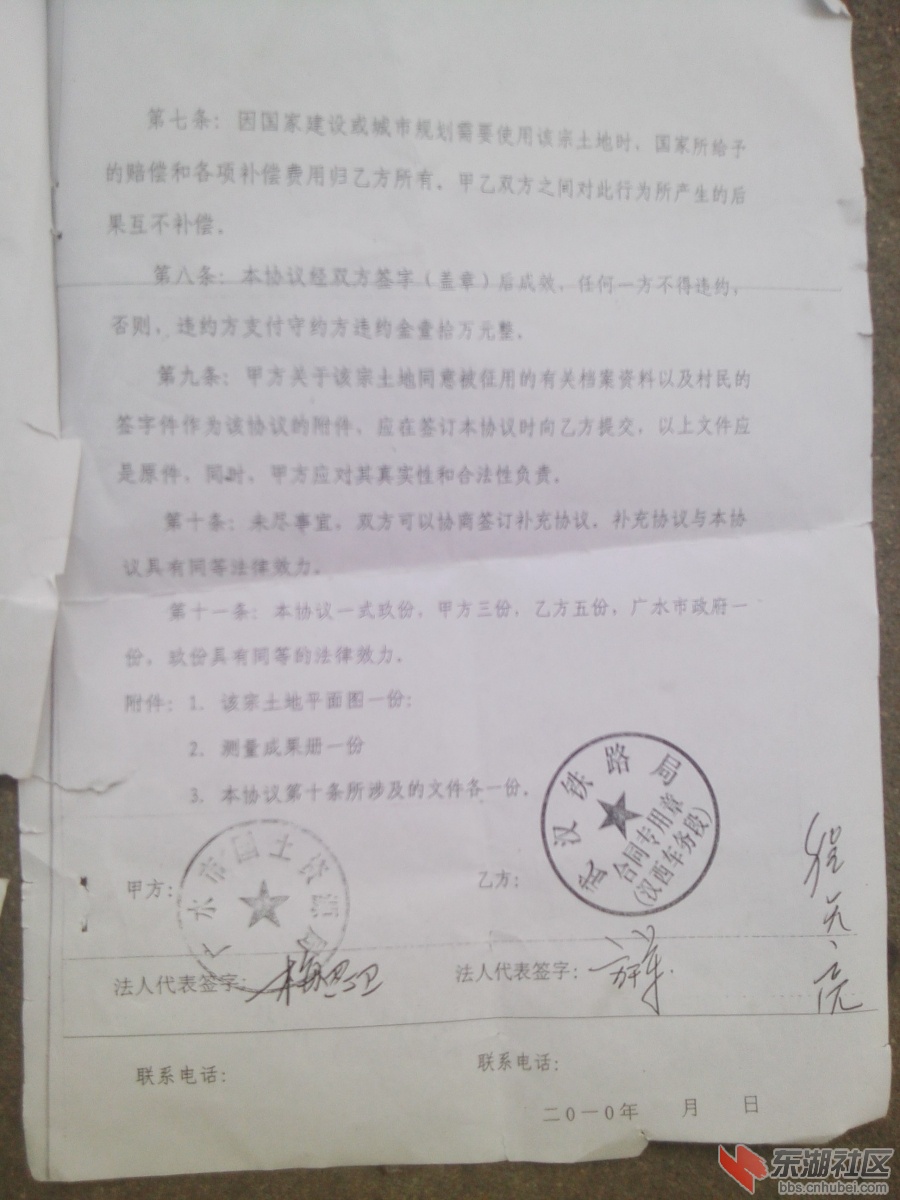 第七条：因国家建设或城市规划需要使用该宗土地时，国家所给予
的赔偿和各项补偿费用归乙方所有，甲乙双方之间对此行为所产生的后
果互不补偿。
第八条：本协议经双方签字（盖章）后成效，任何一方不得违约，
否则，违约方支付守约方违约金壹拾万元整。
第九条：甲方关于该宗土地同意被征用的有关档案资料以及村民的
签字件作为该协议的附件，应在签订本协议时向乙方提交，以上文件应
是原件，同时，甲方应对其真实性和合法性负责。
第十条：未尽事宜，双方可以协商签订补充协议，补充协议与本协
议具有同等法律效力。
第十一条：本协议一式玖份，甲方三份，乙方五份，广水市政府一
份，玖份具有同等的法律效力。
附件：1. 该宗土地平面图一份；
2. 测量成果册一份
3. 本协议第十条所涉及的文件各一份。
甲方：
广水市国土资源局
乙方：
武汉铁路局
合同专用章
(汉西车务段)
法人代表签字：
法人代表签字：
联系电话：
联系电话：
二0一0年 月 日
东湖社区
bbs.cnhubei.com